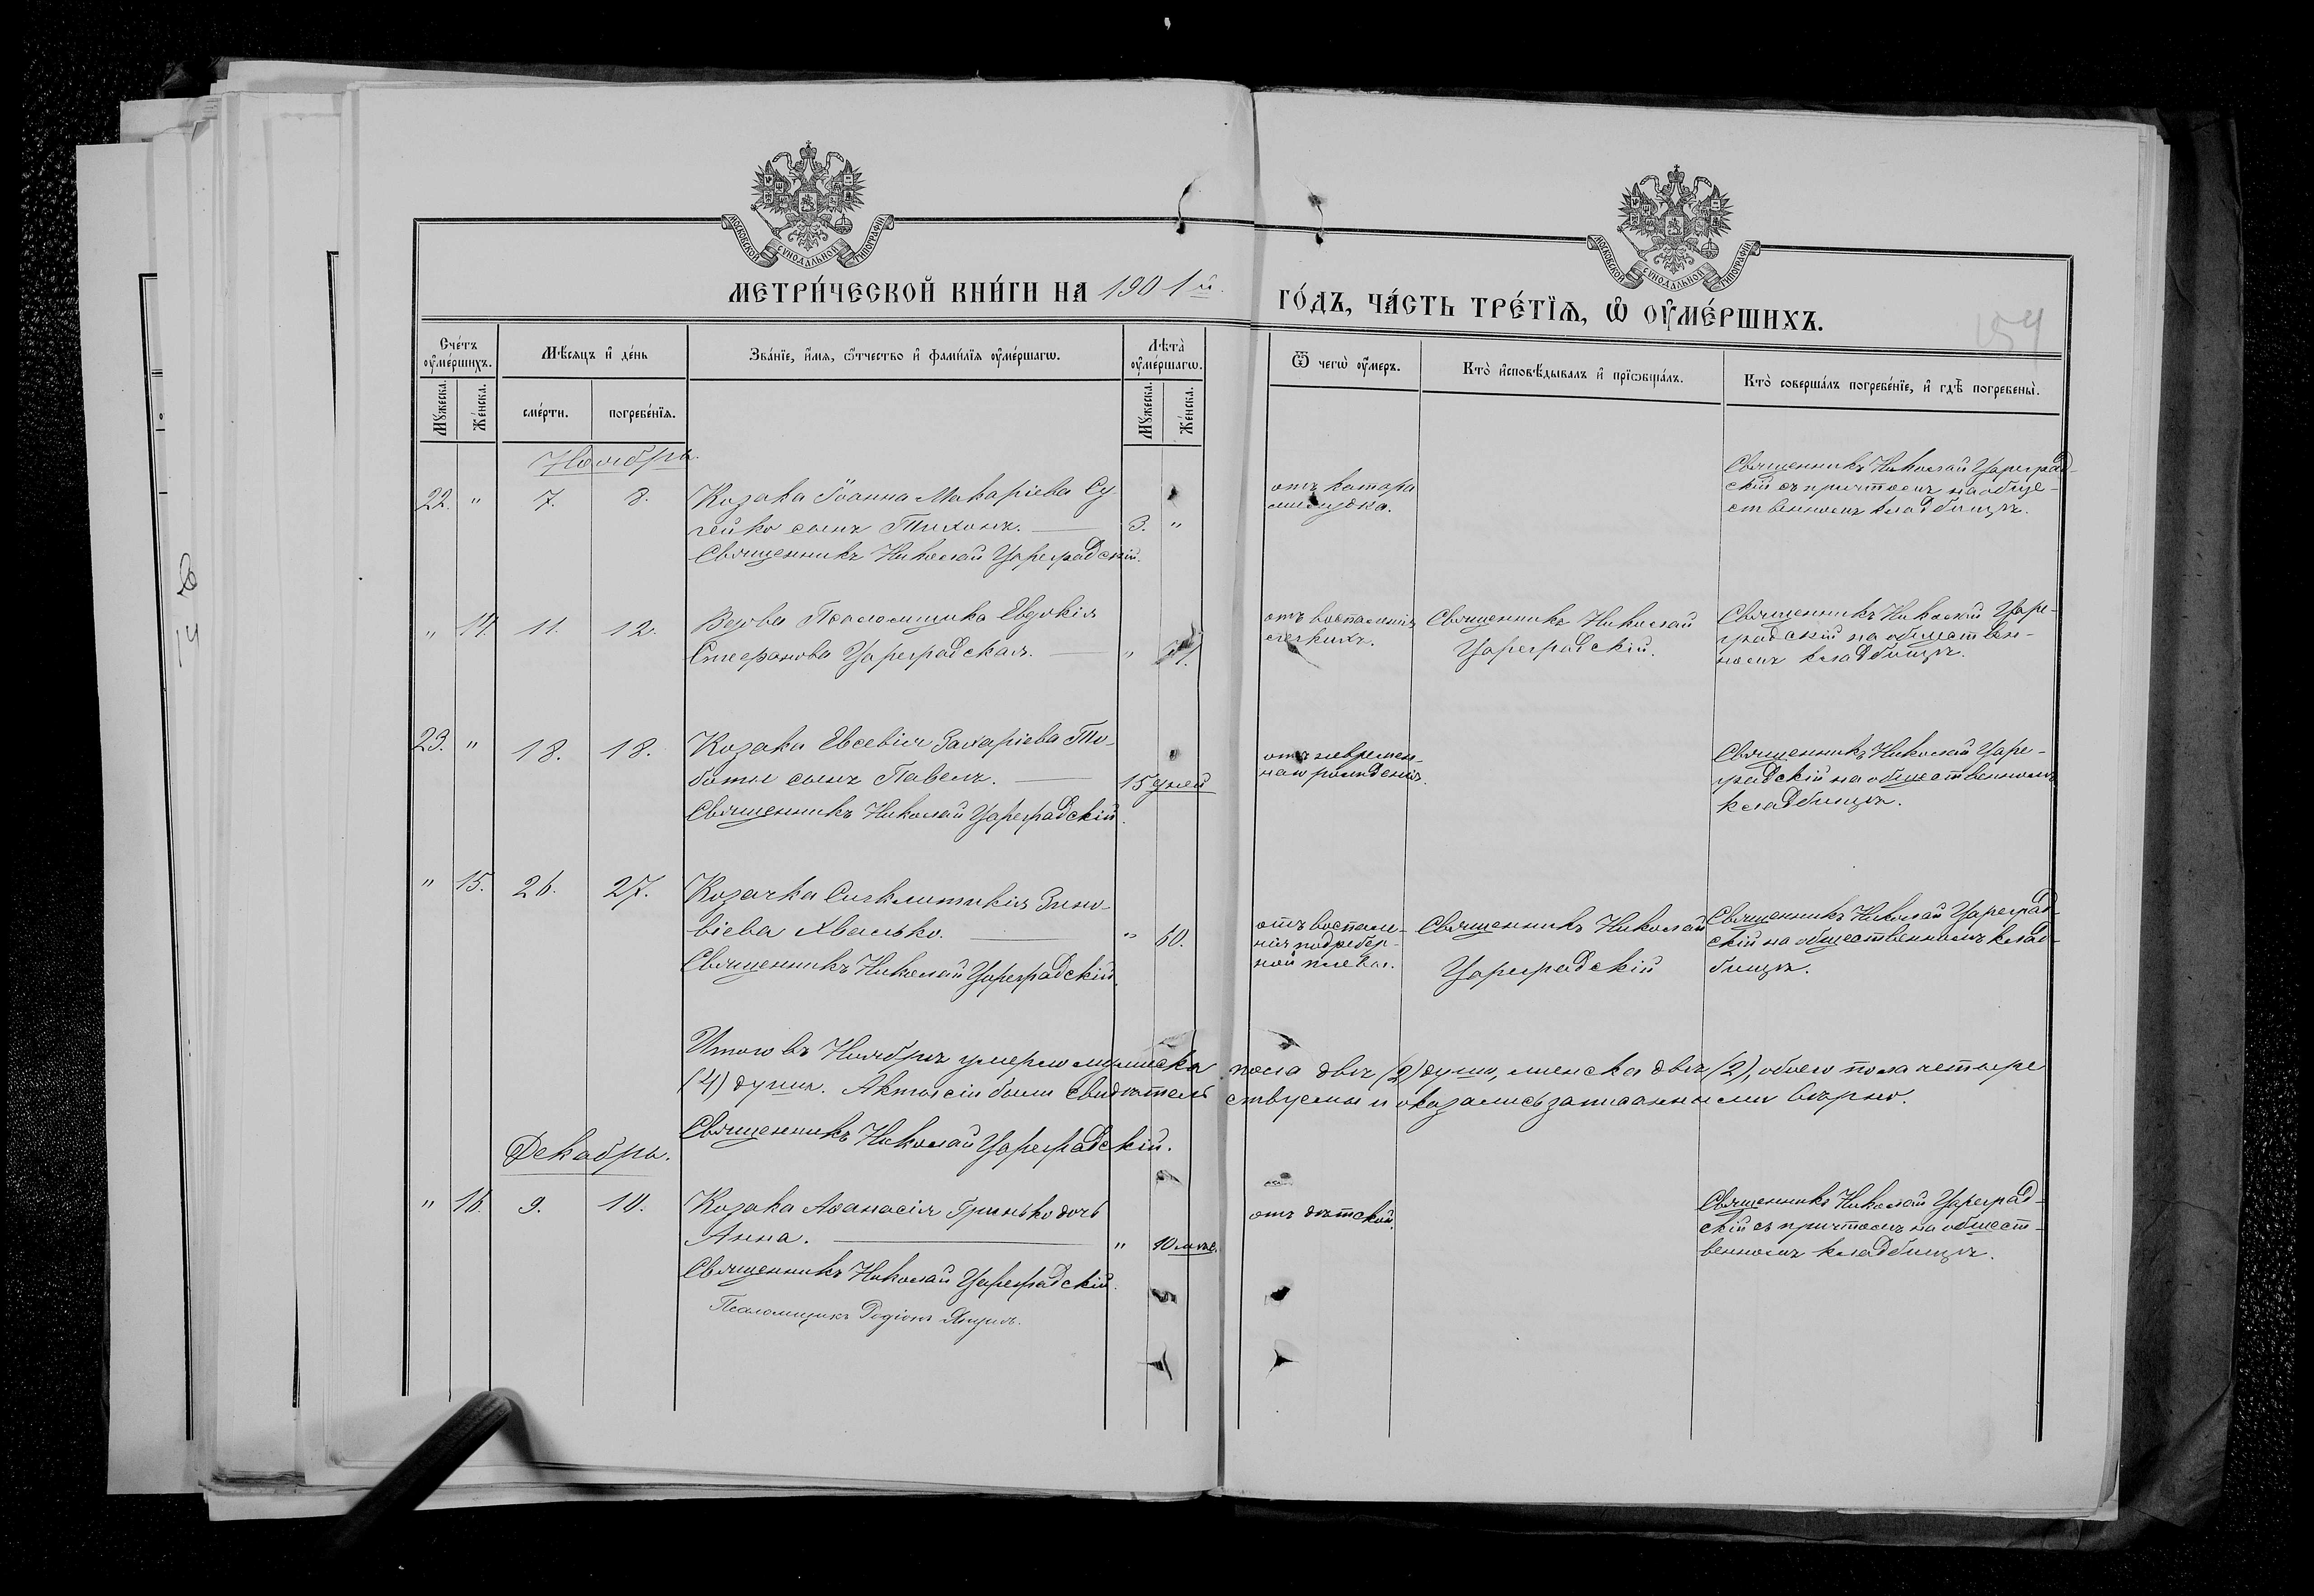 МОСКОВСКОЙ СѴНОДАЛЬНОЙ ТИПОГРАФІИ
МОСКОВСКОЙ СѴНОДАЛЬНОЙ ТИПОГРАФІИ
МЕТРИ́ЧЕСКОЙ КНИ́ГИ НА 1901й
ГО́ДЪ, ЧА́СТЬ ТРЕ́ТЇѦ, Ѡ҆ ОУ҆МЕ́РШИХЪ.
159
Сче́тъ оу҆ме́ршихъ.
Мꙋжеска. Же́нска.
Мѣ́сяцъ и҆ де́нь
сме́рти. погребе́нїѧ.
Зва́нїе, и҆́мѧ, ѻ҆́тчество и҆ фами́лїѧ оу҆ме́ршагѡ.
Лѣ́та оу҆ме́ршагѡ.
Мꙋжеска. Же́нска.
Ѿ чегѡ̀ оу҆́меръ.
Кто̀ и҆сповѣ́дывалъ и҆ прїѡбща́лъ.
Кто̀ соверша́лъ погребе́нїе, и҆ гдѣ̀ погребены̀.
Ноябрь.
22. " 7. 8. Козака Іоанна Макаріева Су
гейко сынъ Тихонъ. 3. "
Священникъ Николай Цареградскій.
отъ катара
желудка.
Священникъ Николай Цареград-
скій съ причтомъ на обще-
ственномъ кладбищѣ.
" 14. 11. 12. Вдова Псаломщика Евдокія
Стефанова Цареградская. "
отъ воспаленія
легкихъ.
Священникъ Николай
Цареградскій.
Священникъ Николай Царе-
градскій на обществен-
номъ кладбищѣ.
23. " 18. 18. Козака Евсевія Захаріева То-
боты сынъ Павелъ. 15 дней
Священникъ Николай Цареградскій.
отъ невремен-
наго рожденія.
Священникъ Николай Царе-
градскій на общественномъ
кладбищѣ.
" 15. 26. 27. Козачка Сигклитикія Зино-
віева Хвалько. " 60.
Священникъ Николай Цареградскій.
отъ воспале-
нія подребер-
ной плевы.
Священникъ Николай
Цареградскій
Священникъ Николай Цареград-
скій на общественномъ клад-
бищѣ.
Итого въ Ноябрѣ умерло мужеска пола двѣ (2) души, женска двѣ (2), обоего пола четыре
(4) души. Акты сіи были свидѣтельствуемы и оказались записанными вѣрно.
Священникъ Николай Цареградскій.
Декабрь.
" 16. 9. 10. Козака Аѳанасія Гринько дочь
Анна. " 10 мѣс.
Священникъ Николай Цареградскій.
Псаломщикъ Родіонъ
отъ дѣтской.
Священникъ Николай Цареград-
скій съ причтомъ на общест-
венномъ кладбищѣ.